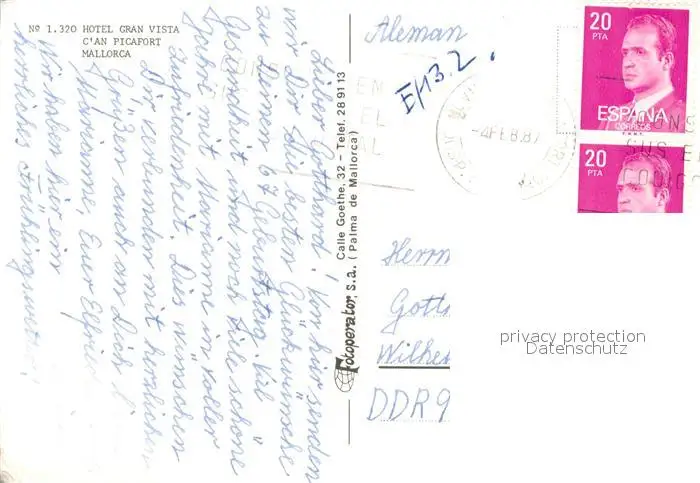 Nº 1.320 HOTEL GRAN VISTA
C'AN PICAFORT
MALLORCA
Lieber Gotthard! Von hier senden
wir Dir die besten Glückwünsche
zu Deinem 67. Geburtstag. Viel
Gesundheit und noch viele schöne
Jahre mit Marianne in voller
Zufriedenheit. Dies wünschen
Dir verbunden mit herzlichen
Grüßen auch an Dich l.
Marianne, Eure Elfrie
Wir haben hier ein
herrliches Frühlingswetter!
Fotoperator, s.a.
Calle Goethe, 32 – Telef. 28 91 13
(Palma de Mallorca)
Aleman
E/13.2.
-4 FEB. 87
20
PTA
ESPAÑA
CORREOS
F.N.M.T.
20
PTA
Herrn
Gotth
Wilhe
DDR 9
privacy protection
Datenschutz